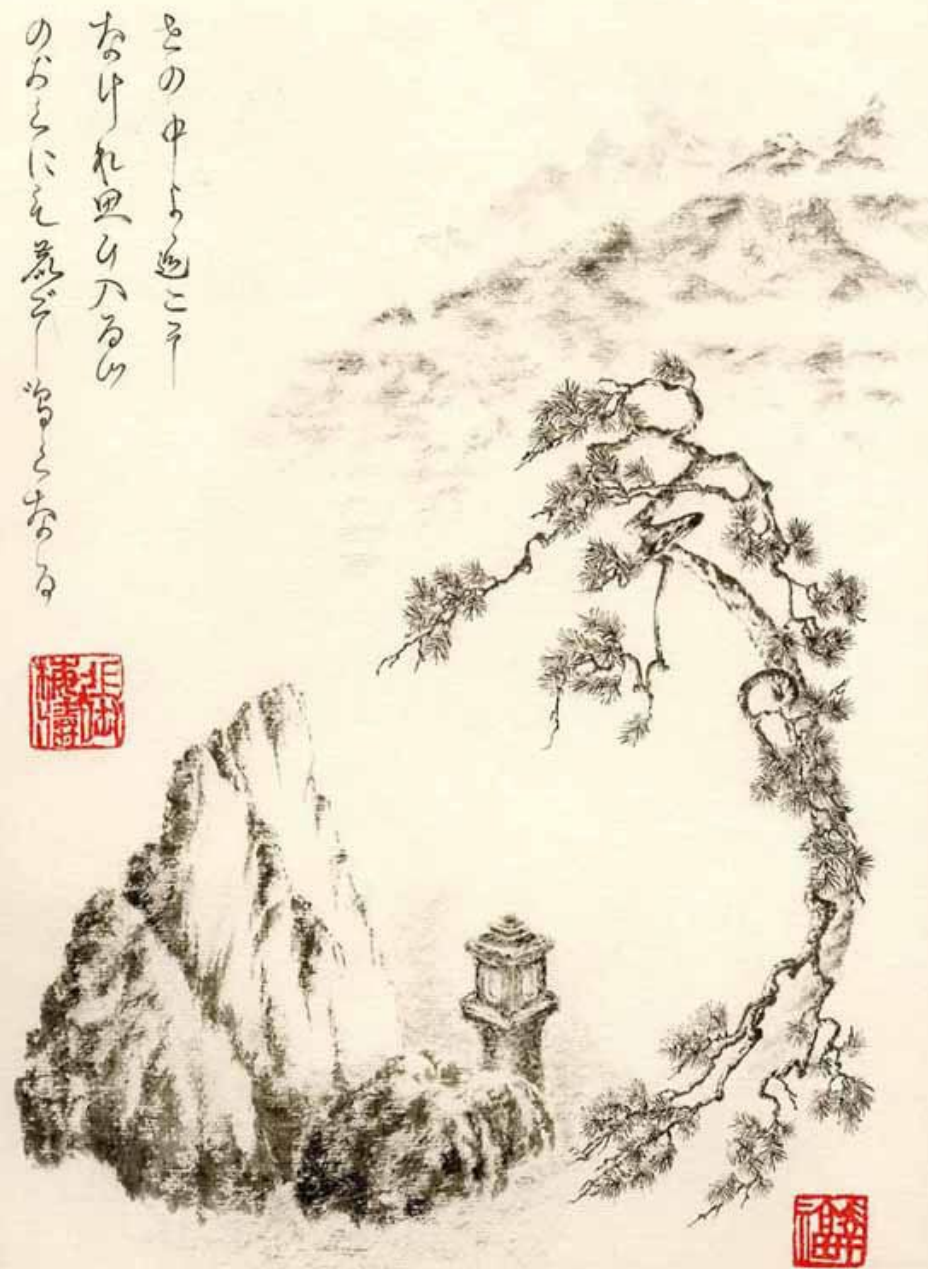 世の中よ道こそ
なけれ思ひ入る山
のおくにも鹿ぞ鳴くなる